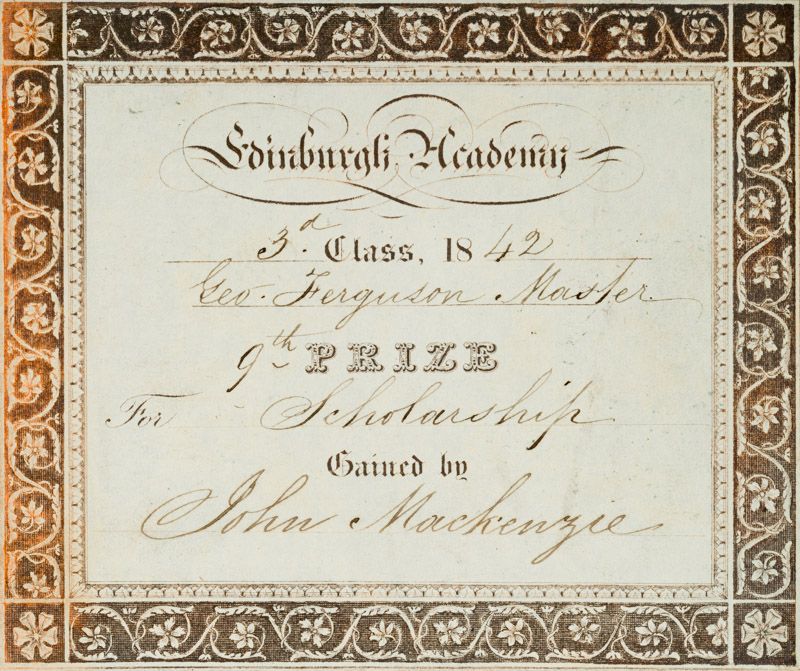 Edinburgh Academy
3d. Class, 1842
Geo. Ferguson Master.
9th PRIZE
For Scholarship
Gained by
John Mackenzie